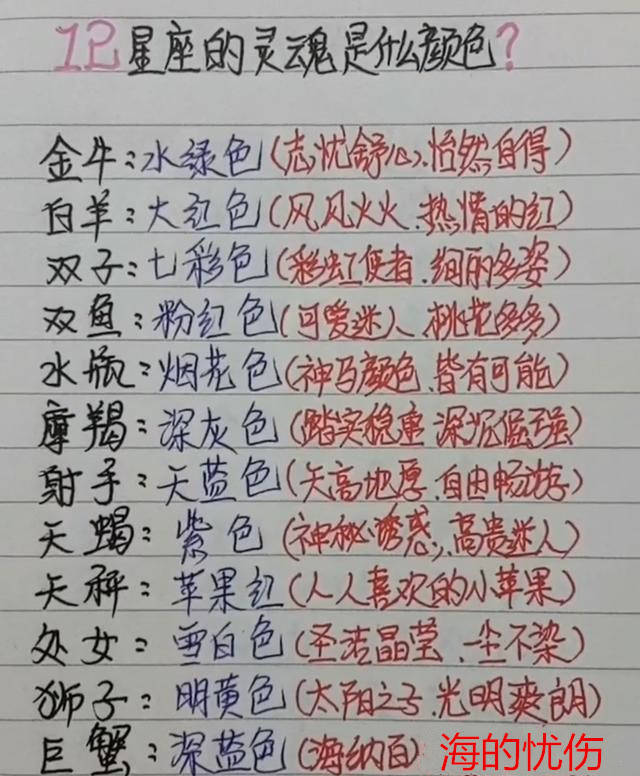 12星座的灵魂是什么颜色?
金牛:水绿色(志忧舒心、怡然自得)
白羊:大红色(风风火火、热情的红)
双子:七彩色(彩虹使者、绚丽多姿)
双鱼:粉红色(可爱迷人、桃花多多)
水瓶:烟花色(神马颜色、皆有可能)
摩羯:深灰色(踏实稳重 深沉倔强)
射手:天蓝色(天高地厚、自由畅游)
天蝎:紫色(神秘诱惑、高贵迷人)
天秤:苹果红(人人喜欢的小苹果)
处女:雪白色(圣洁晶莹、尘不染)
狮子:明黄色(太阳之子、光明爽朗)
巨蟹:深蓝色(海纳百 海的忧伤